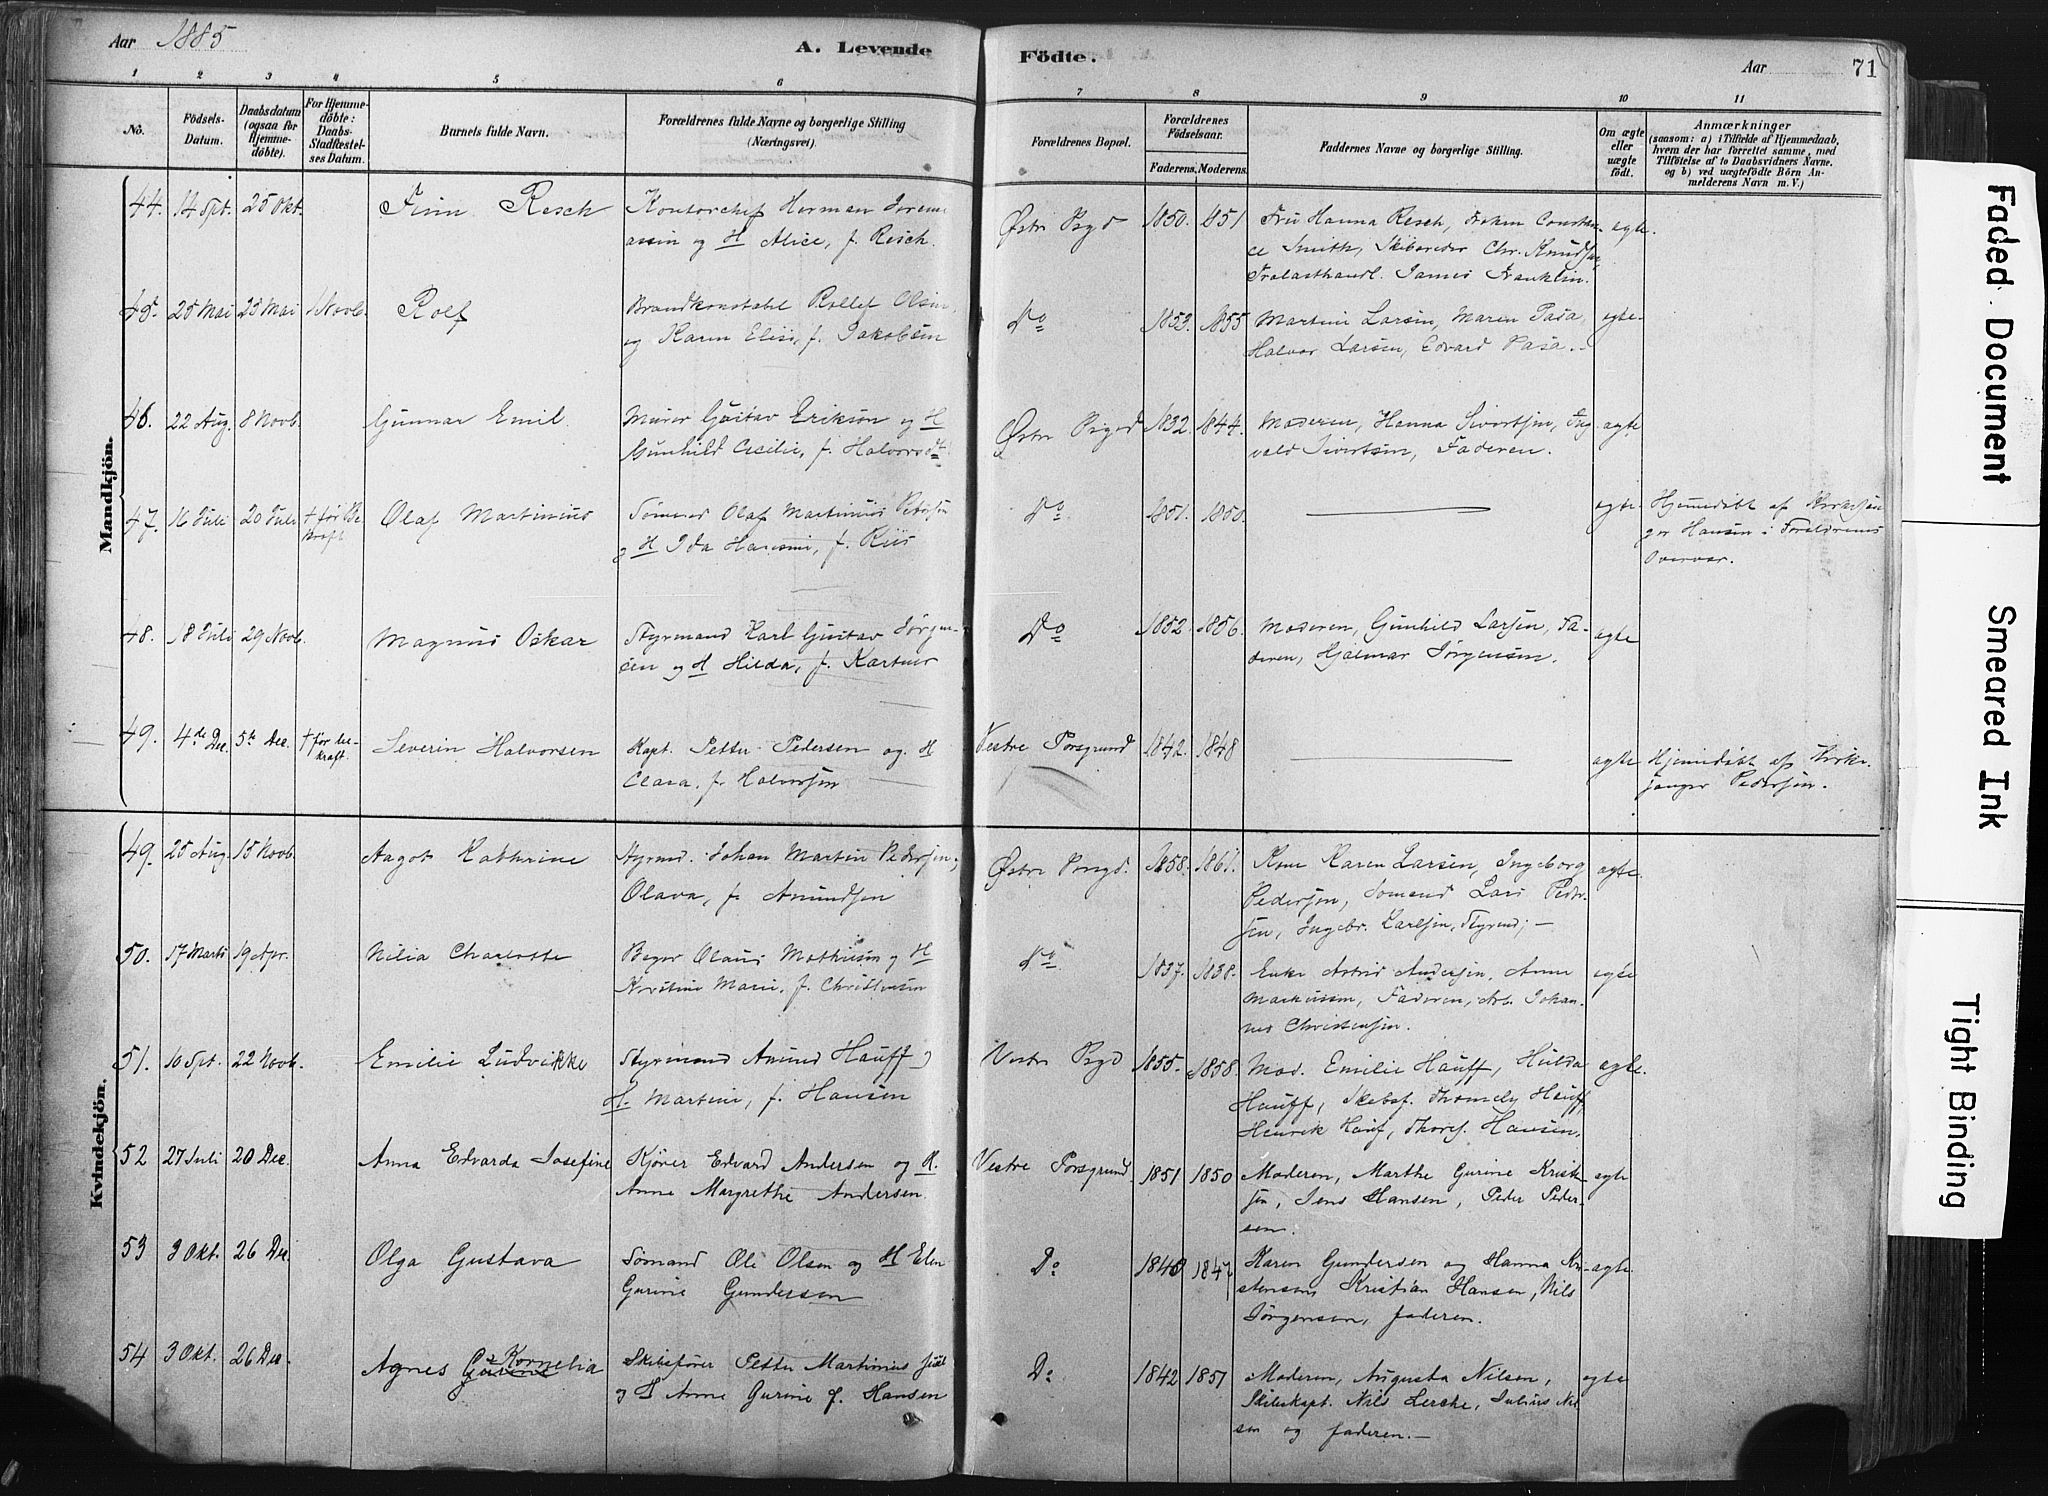 Aar 1885
A. Levende
Födte.
Aar
71
1 2 3 4 5 6 7 8 9 10 11
No.
Födsels-
Datum.
Daabsdatum
(ogsaa for
Hjemme-
döbte).
For Hjemme-
döbte:
Daabs-
Stadfæstel-
ses Datum.
Barnets fulde Navn.
Forældrenes fulde Navne og borgerlige Stilling
(Næringsvei).
Forældrenes Bopæl.
Forældrenes
Födselsaar.
Faderens. Moderens.
Faddernes Navne og borgerlige Stilling.
Om ægte
eller
uægte
födt.
Anmærkninger
(saasom: a) i Tilfælde af Hjemmedaab,
hvem der har forrettet samme, med
Tilföielse af to Daabsvidners Navne.
og b) ved uægtefödte Börn An-
melderens Navn m. V.)
Mandkjön.
44. 14 Spt. 25 Okt. Finn Resch
Kontorchef Herman
og H Alice, f. Resch.
Østre Psgd 1850. 1851
Fru Hanna Resch, Frøken Constan-
ce Smith, Skibsreder Chr. Knudsen,
Trælasthandl. James Franklin.
ægte.
45. 25 Mai 25 Mai 1 Novb. Rolf
Brandkonstabl Rollef Olsen
og Karen Elise, f. Jakobsen
Do 1853. 1855
Martine Larsen, Maren Pasa,
Halvor Larsen, Edvard Pasa.-
ægte-
46. 22 Aug. 8 Novb. Gunnar Emil
Murer Gustav Eriksen og H
Gunhild Cecilie, f. Halvorsdt.
Østre Psgrd 1832. 1844.
Moderen, Hanna Sivertsen, Ing
vald Sivertsen, Faderen.
ægte
47. 16 Juli 20 Juli † før Be
kraft. Olaf Martinius
Sømand Olaf Martinius Petersen
og H Ida f. Riis
Do 1851. 1850.
ægte
Hjemedøbt af Kirkesan
ger Hansen i Forældrenes
Overvær.
48. 18 Juli 29 Novb. Magnus Oskar
Styrmand Karl Gustav Jørgen-
sen og H Hilda, f.
Do 1852. 1856.
Moderen, Gunhild Larsen, Fa-
deren, Hjalmar Jørgensen.
ægte
49. 4de Dec. 5te Dec. † før be-
kraft. Severin Halvorsen
Kapt. Petter Pedersen og H
Clara, f. Halvorsen
Vestre Porsgrund 1842. 1848
ægte
Hjemedøbt af Kirke-
sanger Pedersen.
Kvindekjön.
49. 25 Aug. 15 Novb. Aagot Kathrine
Styrmd. Johan Martin Pedersen,
Olava, f. Amundsen
Østre Porsgd. 1858. 1861.
Kone Karen Larsen, Ingeborg
Pedersen, Sømand Lars Peder-
sen, Ingebr. Karlsen, Styrmd; -
ægte.
50. 17 Marts 19 Apr. Nilia Charlotte
Olaus Mathisen og H
Kirstine Marie, f. Christensen
Do 1837. 1838.
Enke Astrid Andersen, Anne
Markussen, Faderen, Arb. Johan-
nes Christensen.
ægte
51. 10 Spt. 22 Novb. Emilie Ludvikke
Styrmand Amund Hauff og
H. Martine, f. Hansen
Vestre Psgd 1855. 1858.
Mod. Emilie Hauff, Hulda
Hauff, Skibsf. Hauff,
Henrik Hauf, Hansen.
ægte.
52 27 Juli 20 Dec. Anna Edvarda Josefine
Kjører Edvard Andersen og H.
Anne Margrethe Andersen.
Vestre Porsgrund 1851 1850
Moderen, Marthe Gurine Krist-
sen, Jens Hansen, Peder Peder-
sen.
ægte
53 3 Okt. 26 Dec. Olga Gustava
Sømand Ole Olsen og H Elen
Gurine Gundersen
Do 1840 1847
Karen Gundersen og Hanna Kri-
stensen, Kristian Hansen, Nils
Jørgensen, faderen.
ægte.
54 3 Okt. 26 Dec. Agnes Gurine Kornelia
Skibsfører Petter Martinius
og H Anne Gurine f. Hansen
Do 1842 1851
Moderen, Augusta Nilsen,
Skibskapt. Nils Lercke, Julius Nil
sen og faderen.-
ægte
Faded Document
Smeared Ink
Tight Binding